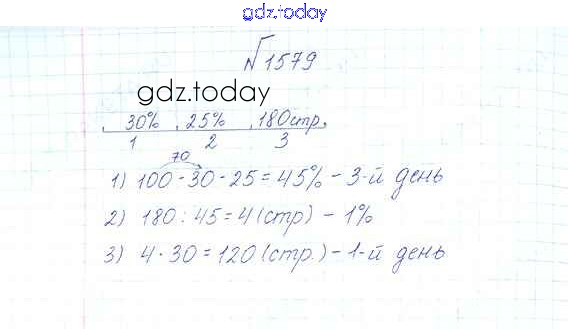 gdz.today
№1579
gdz.today
30% 25% 180стр.
1 2 3
70
1) 100-30-25=45% - 3-й день
2) 180:45=4(стр) - 1%
3) 4·30=120(стр.) - 1-й день